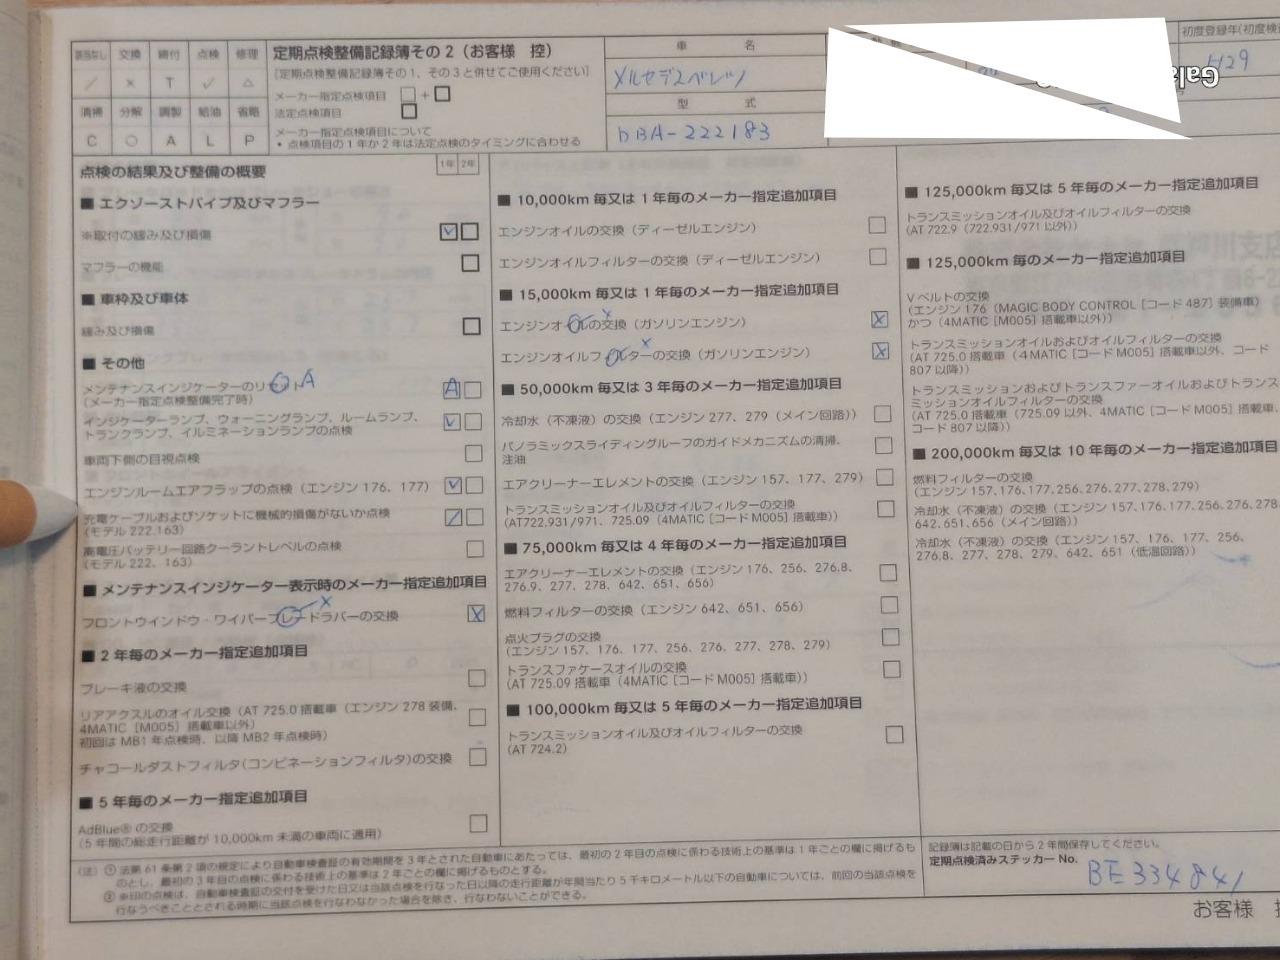 該当なし 交換 締付 点検 修理
／ × T ✓ △
清掃 分解 調整 給油 省略
C ○ A L P
定期点検整備記録簿その2（お客様 控）
［定期点検整備記録簿その1、その3と併せてご使用ください］
メーカー指定点検項目 □+□
法定点検項目 □
メーカー指定点検項目について
・点検項目の1年か2年は法定点検のタイミングに合わせる
車 名
メルセデスベンツ
型 式
DBA-222183
初度登録年(初度検
H29
点検の結果及び整備の概要
1年 2年
■ エクゾーストパイプ及びマフラー
※取付の緩み及び損傷 ✓
マフラーの機能
■ 車枠及び車体
緩み及び損傷
■ その他
メンテナンスインジケーターのリセット A A
(メーカー指定点検整備完了時)
インジケーターランプ、ウォーニングランプ、ルームランプ、 ✓
トランクランプ、イルミネーションランプの点検
車両下側の目視点検
エンジンルームエアフラップの点検（エンジン 176、177） ✓
充電ケーブルおよびソケットに機械的損傷がないか点検 ／
(モデル 222.163)
高電圧バッテリー回路クーラントレベルの点検
(モデル 222．163)
■ メンテナンスインジケーター表示時のメーカー指定追加項目
フロントウインドウ・ワイパーブレードラバーの交換 × X
■ 2年毎のメーカー指定追加項目
ブレーキ液の交換
リアアクスルのオイル交換（AT 725.0 搭載車（エンジン 278 装備、
4MATIC［M005］搭載車以外）
初回は MB1 年点検時、以降 MB2 年点検時）
チャコールダストフィルタ(コンビネーションフィルタ)の交換
■ 5年毎のメーカー指定追加項目
AdBlue® の交換
(5年間の総走行距離が 10,000km 未満の車両に適用)
■ 10,000km 毎又は 1 年毎のメーカー指定追加項目
エンジンオイルの交換（ディーゼルエンジン）
エンジンオイルフィルターの交換（ディーゼルエンジン）
■ 15,000km 毎又は 1 年毎のメーカー指定追加項目
エンジンオイルの交換（ガソリンエンジン） × X
エンジンオイルフィルターの交換（ガソリンエンジン） × X
■ 50,000km 毎又は 3 年毎のメーカー指定追加項目
冷却水（不凍液）の交換（エンジン 277、279（メイン回路））
パノラミックスライディングルーフのガイドメカニズムの清掃、
注油
エアクリーナーエレメントの交換（エンジン 157、177、279）
トランスミッションオイル及びオイルフィルターの交換
(AT722.931/971、725.09（4MATIC［コード M005］搭載車））
■ 75,000km 毎又は 4 年毎のメーカー指定追加項目
エアクリーナーエレメントの交換（エンジン 176、256、276.8、
276.9、277、278、642、651、656）
燃料フィルターの交換（エンジン 642、651、656）
点火プラグの交換
(エンジン 157、176、177、256、276、277、278、279)
トランスファケースオイルの交換
(AT 725.09 搭載車（4MATIC［コード M005］搭載車））
■ 100,000km 毎又は 5 年毎のメーカー指定追加項目
トランスミッションオイル及びオイルフィルターの交換
(AT 724.2)
■ 125,000km 毎又は 5 年毎のメーカー指定追加項目
トランスミッションオイル及びオイルフィルターの交換
(AT 722.9（722.931/971 以外))
■ 125,000km 毎のメーカー指定追加項目
V ベルトの交換
(エンジン 176（MAGIC BODY CONTROL［コード 487］装備車）
かつ（4MATIC［M005］搭載車以外))
トランスミッションオイルおよびオイルフィルターの交換
(AT 725.0 搭載車（4 MATIC［コード M005］搭載車以外、コード
807 以降))
トランスミッションおよびトランスファーオイルおよびトランス
ミッションオイルフィルターの交換
(AT 725.0 搭載車（725.09 以外、4MATIC［コード M005］搭載車、
コード 807 以降))
■ 200,000km 毎又は 10 年毎のメーカー指定追加項目
燃料フィルターの交換
(エンジン 157、176、177、256、276、277、278、279)
冷却水（不凍液）の交換（エンジン 157、176、177、256、276、278
642、651、656（メイン回路))
冷却水（不凍液）の交換（エンジン 157、176、177、256、
276.8、277、278、279、642、651（低温回路))
(注) ① 法第 61 条第 2 項の規定により自動車検査証の有効期間を 3 年とされた自動車にあたっては、最初の 2 年目の点検に係わる技術上の基準は 1 年ごとの欄に掲げるも
のとし、最初の 3 年目の点検に係わる技術上の基準は 2 年ごとの欄に掲げるものとする。
② ※印の点検は、自動車検査証の交付を受けた日又は当該点検を行なった日以降の走行距離が年間当たり 5 千キロメートル以下の自動車については、前回の当該点検を
行なうべきこととされる時期に当該点検を行なわなかった場合を除き、行なわないことができる。
記録簿は記載の日から 2 年間保存してください。
定期点検済みステッカー No.
BE334841
お客様